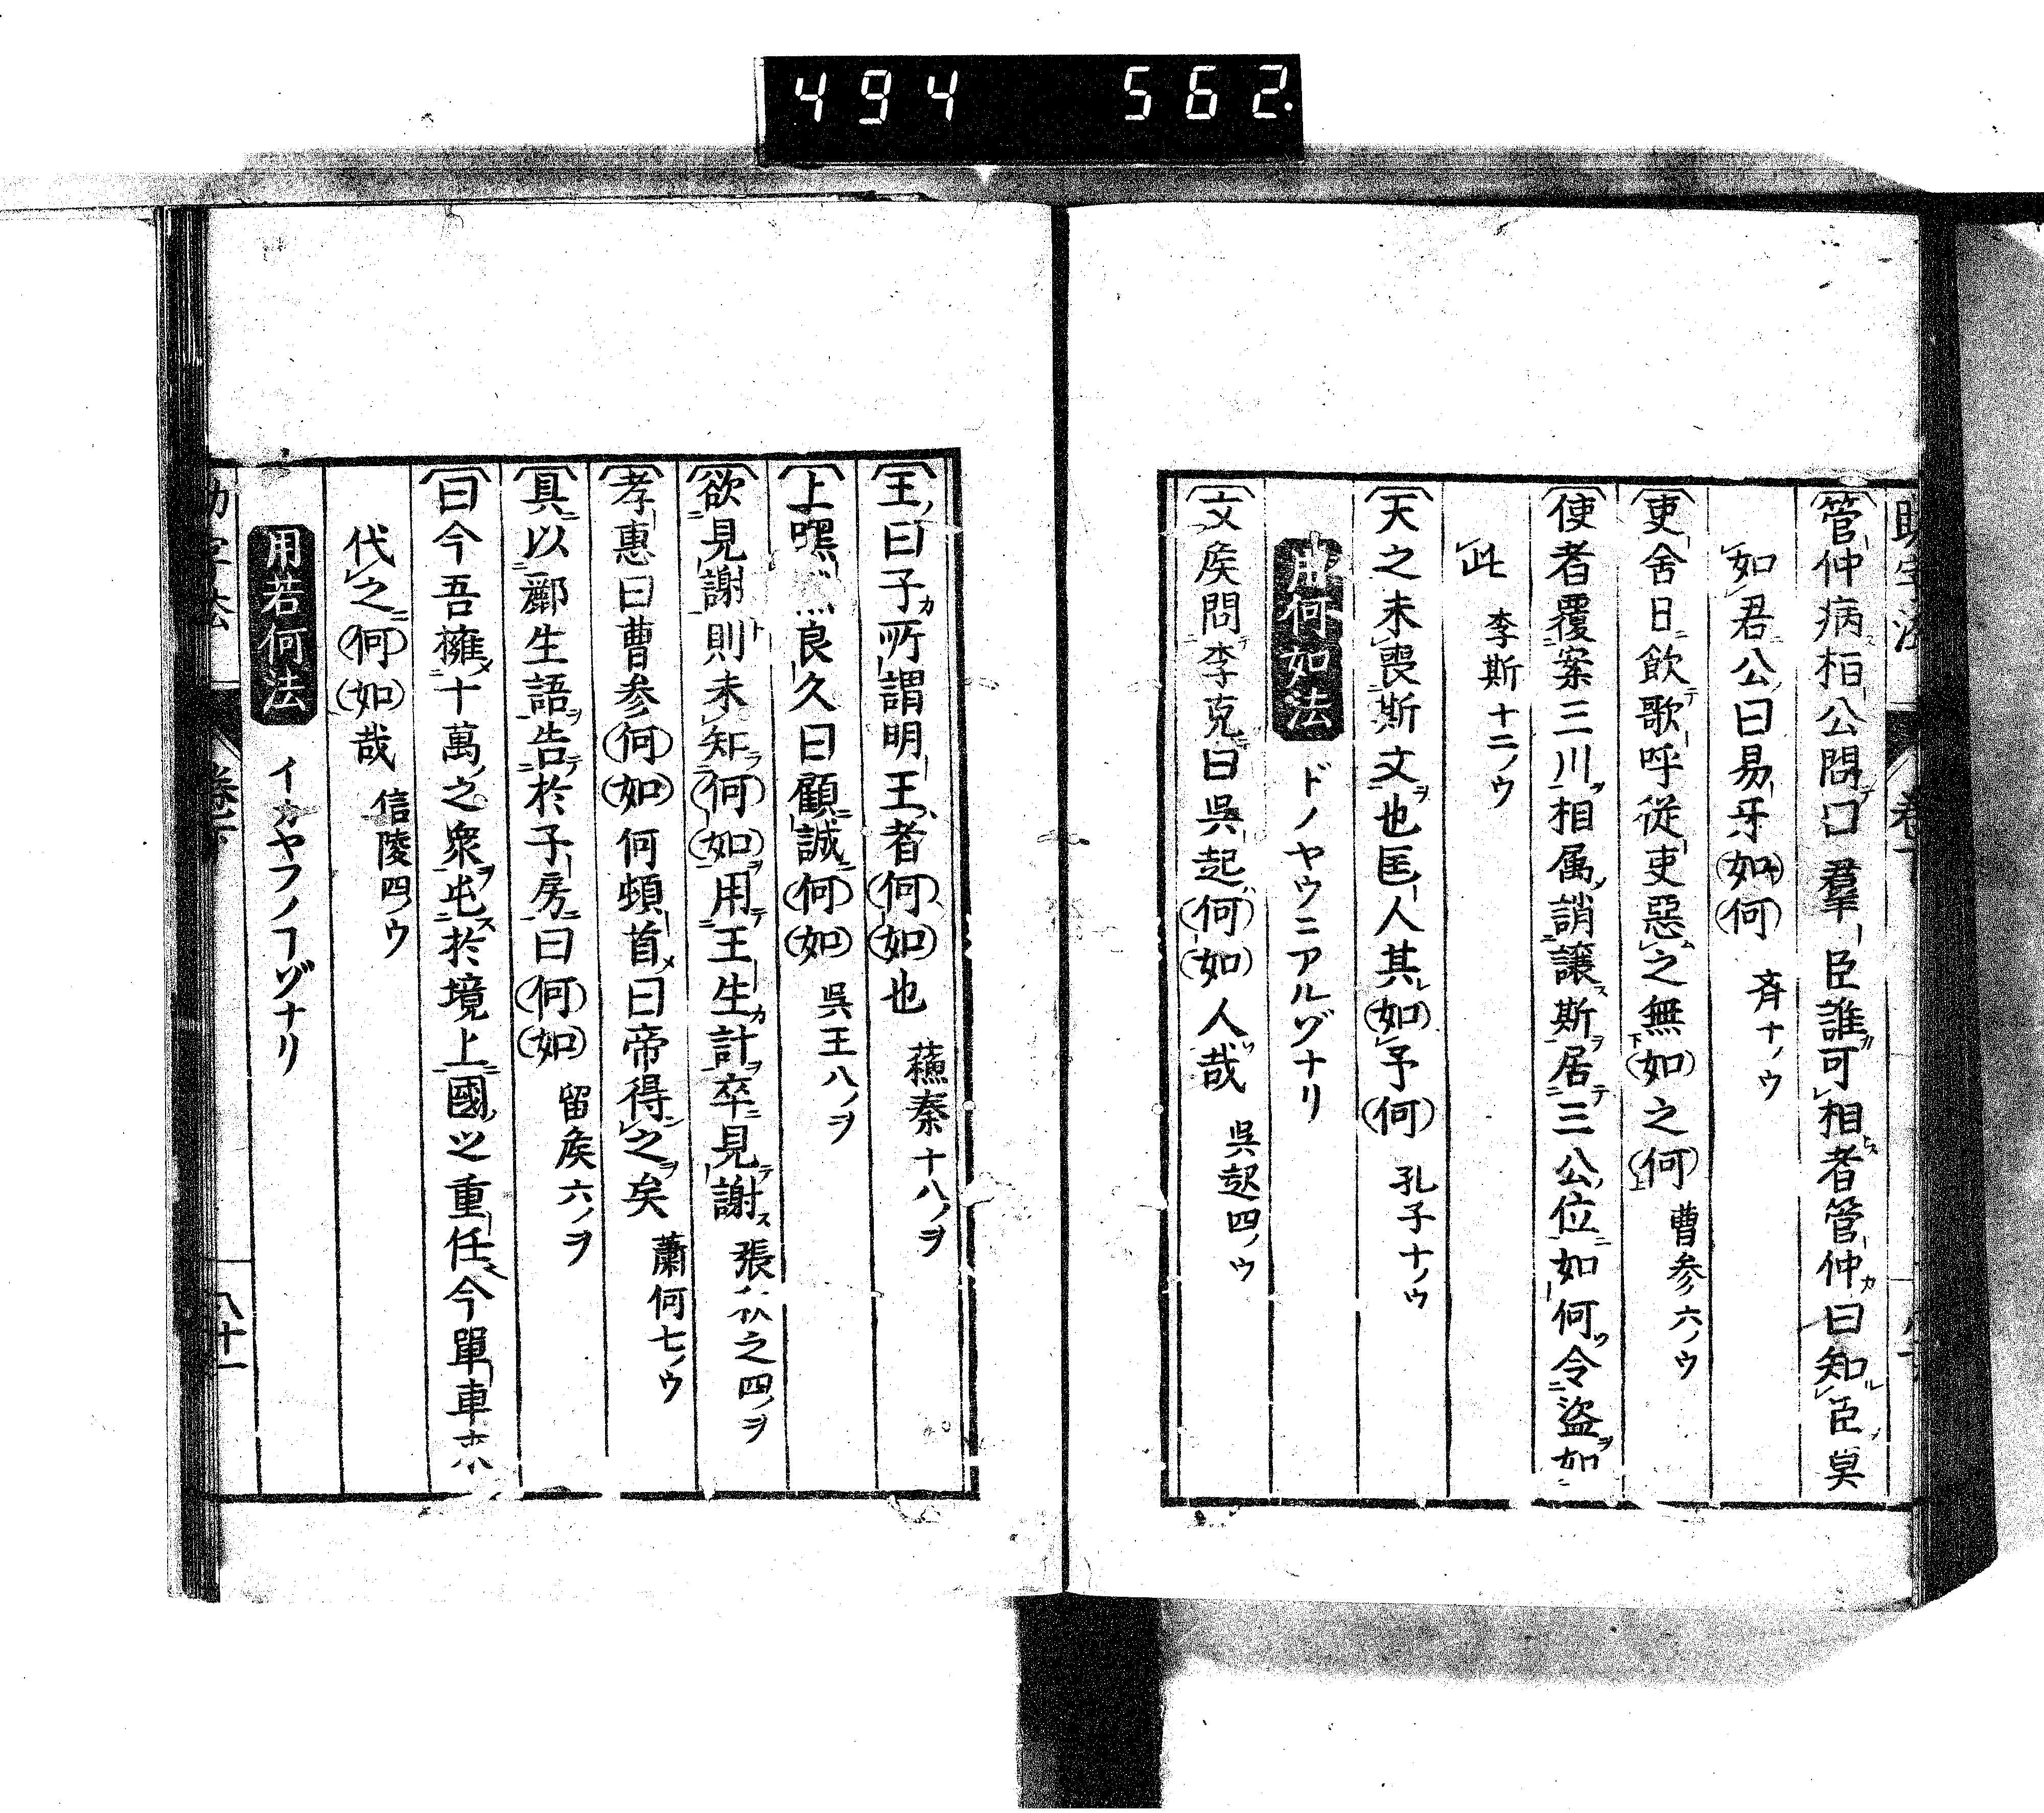 494 562.
管仲病桓公問曰羣臣誰可相者管仲曰知臣莫
如君公曰易牙如何 斉十ノウ
吏舍日飲歌呼従吏惡之無如之何 曹参六ノウ
使者覆案三川相属誚譲斯居三公位如何令盗如
此 李斯十二ノウ
天之未喪斯文也匡人其如予何 孔子十ノウ
用何如法 ドノヤウニアルゾナリ
文侯問李克曰呉起何如人哉 呉起四ノウ
王曰子所謂明王者何如也 蘓秦十八ノヲ
上嘿然良久曰顧誠何如 呉王八ノヲ
欲見謝則未知何如用王生計卒見謝 張 之四ノヲ
孝惠曰曹参何如何頓首曰帝得之矣 蕭何七ノウ
具以酈生語告於子房曰何如 留侯六ノヲ
曰今吾擁十萬之衆屯於境上國之重任今單車来
代之何如哉 信陵四ノウ
用若何法 イカヤフノヿゾナリ
助字法 卷下 八十一